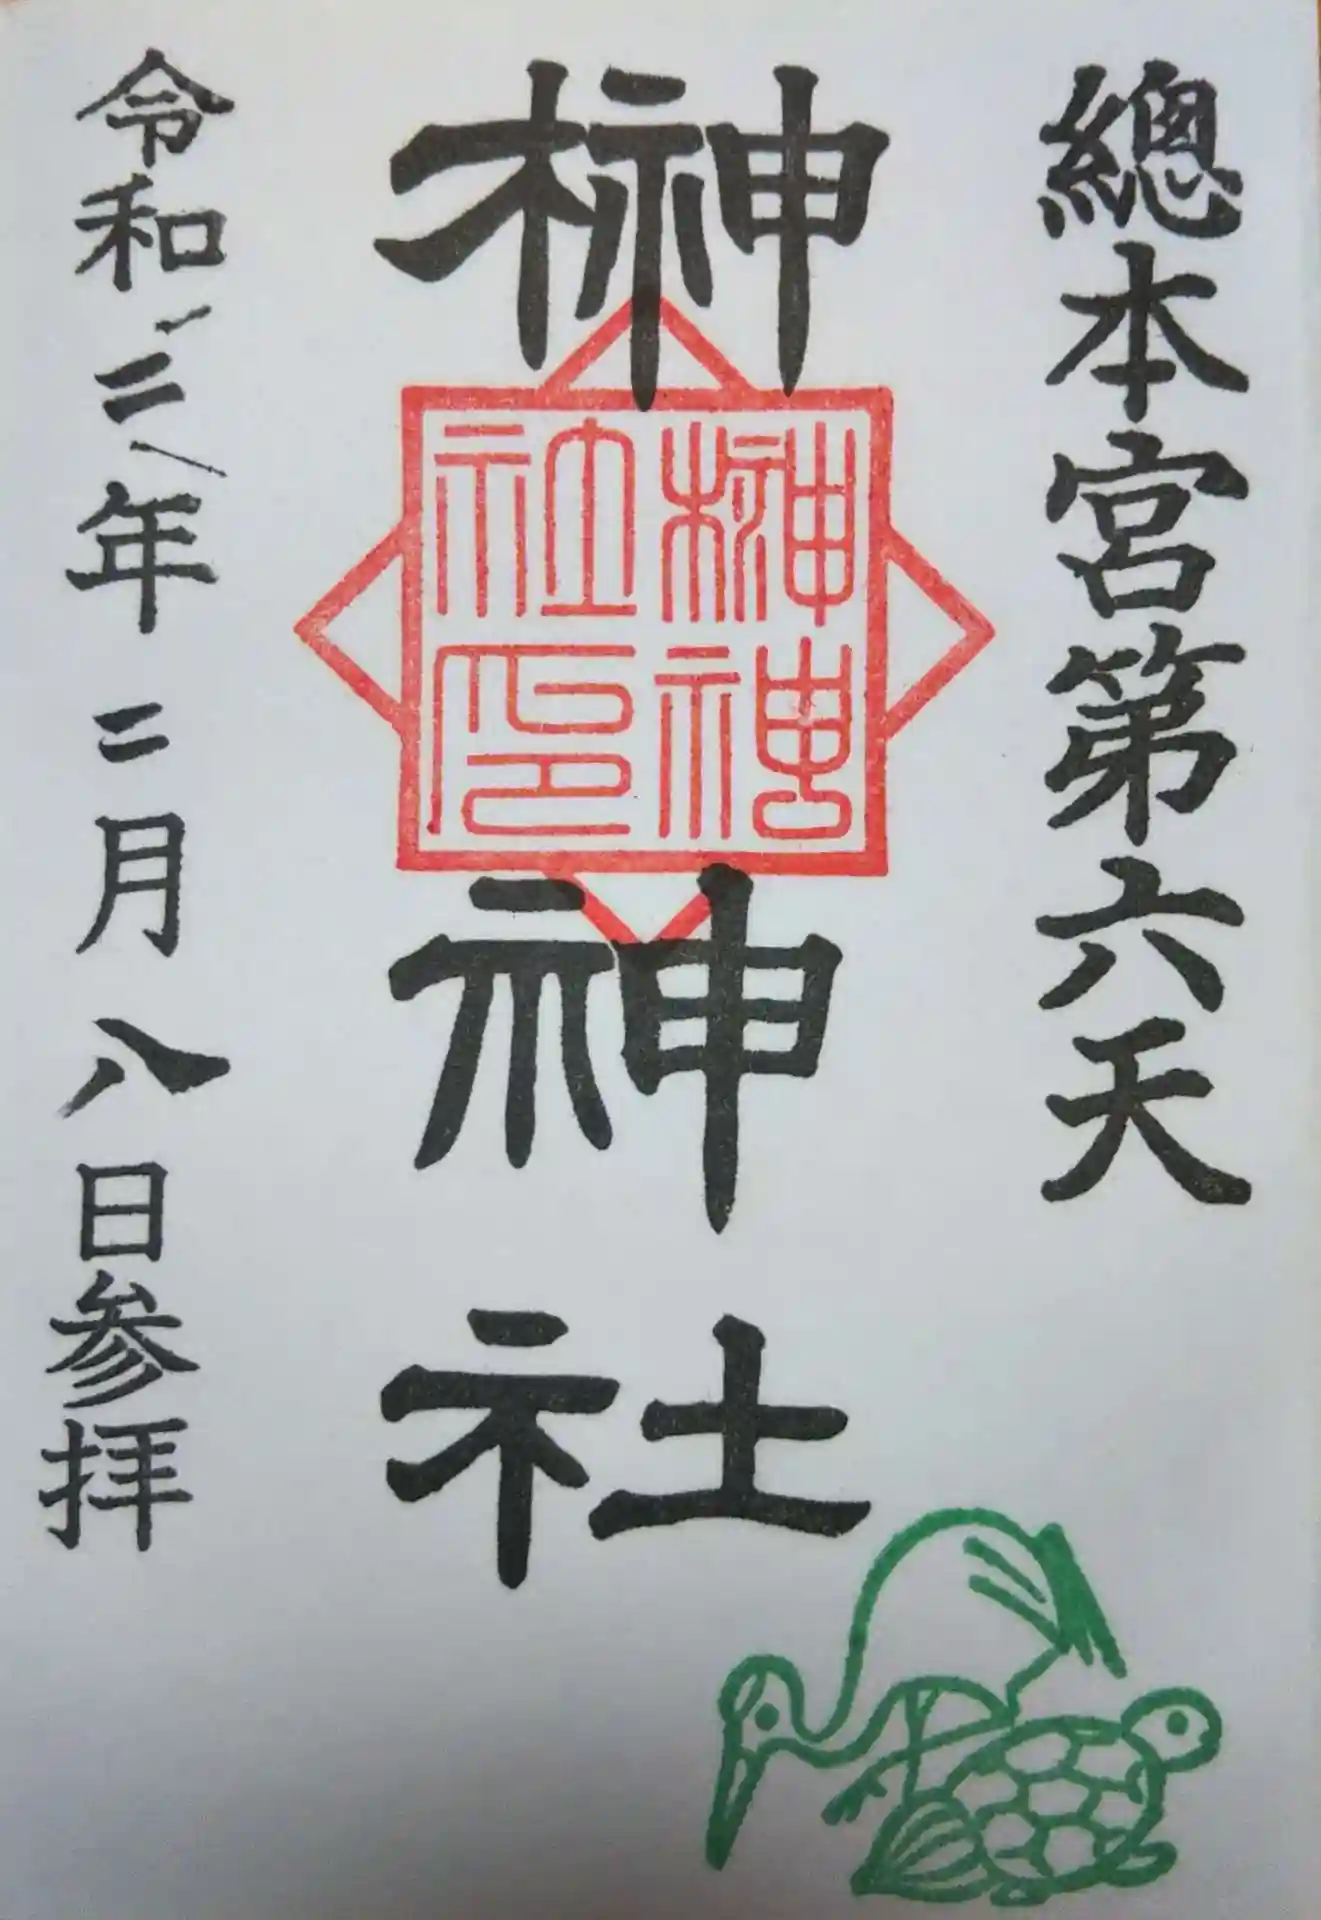 總本宮第六天
榊神社
榊神社印
令和二年二月八日参拝